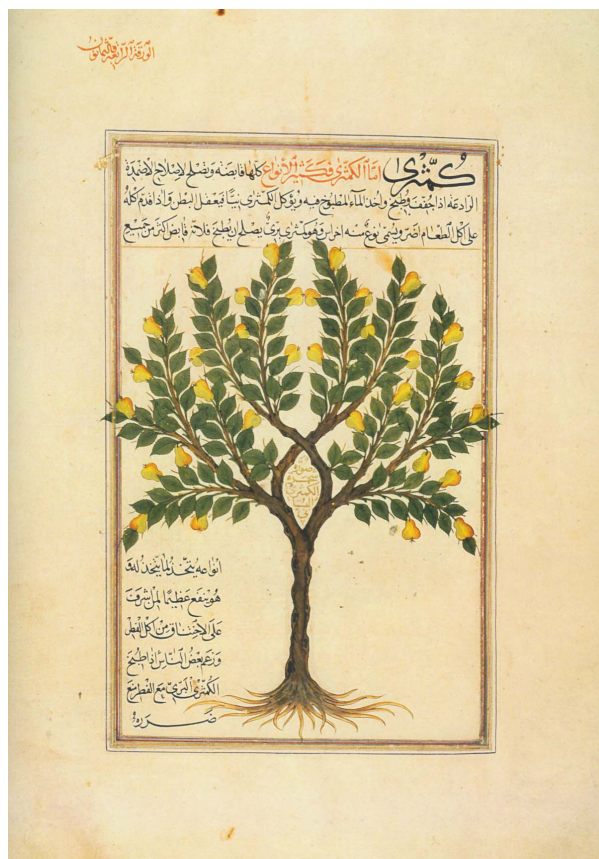 الورقة الرابعة والثمانون
كمّثرى امّا الكمّثرى فكثير الأنواع كلها قابضة وتصلح لإصلاح الأضمدة
الرادعة اذا جففت وطبخ واخذ الماء المطبوخ فيه ويؤكل الكمثرى نيّا فيعقل البطن واذا قدم كله
على اكل الطعام اضر ويسمى نوع منه اخراس وهو كمثرى بري يصلح ان يطبخ فلانه قابض اكثر من جميع
صورة
شجرة
الكمثرى
انواعه يتخذ لما يتخذ له و
هو ينفع عظيما لمن اشرف
على الاختناق من اكل الفطر
وزعم بعض الناس اذا طبخ
الكمثرى البري مع الفطر منع
ضرره